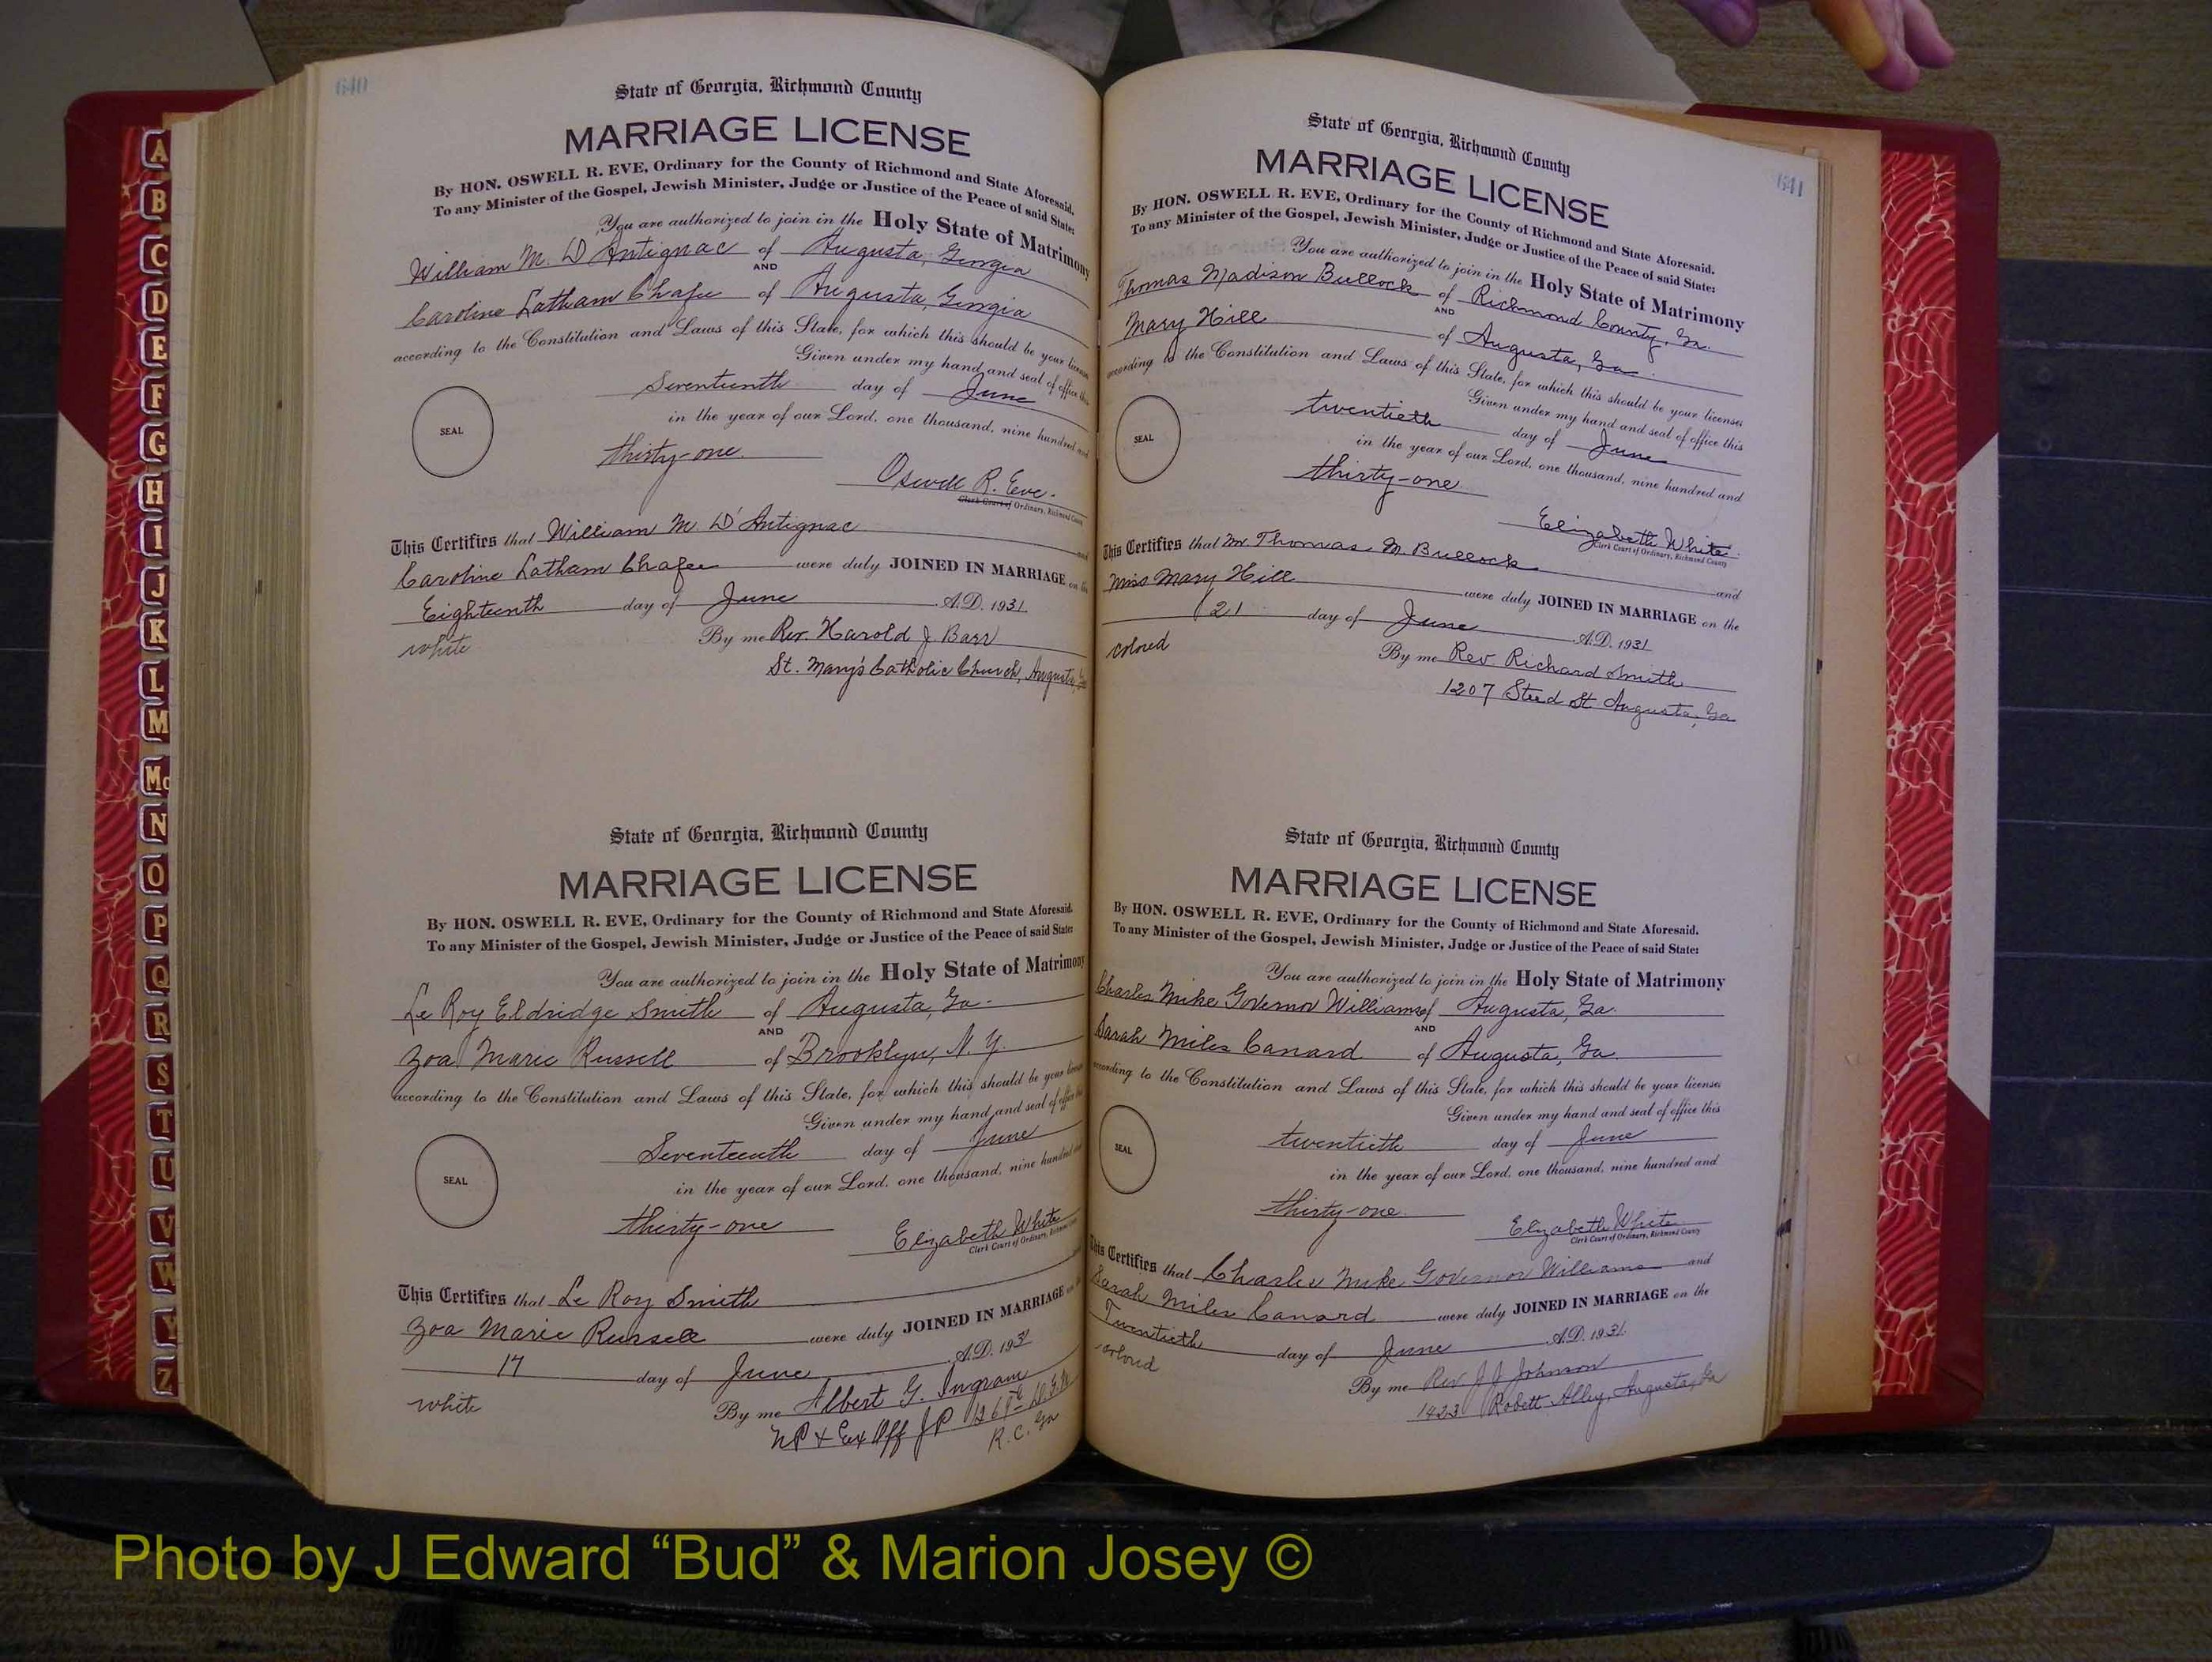 640
State of Georgia, Richmond County
MARRIAGE LICENSE
By HON. OSWELL R. EVE, Ordinary for the County of Richmond and State Aforesaid.
To any Minister of the Gospel, Jewish Minister, Judge or Justice of the Peace of said State:
You are authorized to join in the Holy State of Matrimony
William M. D'Antignac of Augusta, Georgia
AND
Caroline Latham Chafee of Augusta, Georgia
according to the Constitution and Laws of this State, for which this should be your license
Given under my hand and seal of office this
Seventeenth day of June
SEAL
in the year of our Lord, one thousand, nine hundred and
thirty-one
Oswell R. Eve.
Clerk Court of Ordinary, Richmond County
This Certifies that William M. D'Antignac and
Caroline Latham Chafee were duly JOINED IN MARRIAGE on the
Eighteenth day of June A.D. 1931
white By me Rev. Harold J. Barr
St. Mary's Catholic Church, Augusta, Ga
State of Georgia, Richmond County
MARRIAGE LICENSE
By HON. OSWELL R. EVE, Ordinary for the County of Richmond and State Aforesaid.
To any Minister of the Gospel, Jewish Minister, Judge or Justice of the Peace of said State:
You are authorized to join in the Holy State of Matrimony
Le Roy Eldridge Smith of Augusta, Ga.
AND
Zoa Marie Russell of Brooklyn, N. Y.
according to the Constitution and Laws of this State, for which this should be your license
Given under my hand and seal of office this
Seventeenth day of June
SEAL
in the year of our Lord, one thousand, nine hundred and
thirty-one
Elizabeth White
Clerk Court of Ordinary, Richmond County
This Certifies that Le Roy Smith and
Zoa Marie Russell were duly JOINED IN MARRIAGE on the
17 day of June A.D. 1931
white By me Albert G. Ingram
NP & Ex Off JP 1268th D.G.M
R.C. Ga
641
State of Georgia, Richmond County
MARRIAGE LICENSE
By HON. OSWELL R. EVE, Ordinary for the County of Richmond and State Aforesaid.
To any Minister of the Gospel, Jewish Minister, Judge or Justice of the Peace of said State:
You are authorized to join in the Holy State of Matrimony
Thomas Madison Bullock of Richmond County, Ga.
AND
Mary Hill of Augusta, Ga.
according to the Constitution and Laws of this State, for which this should be your license
Given under my hand and seal of office this
twentieth day of June
SEAL
in the year of our Lord, one thousand, nine hundred and
thirty-one
Elizabeth White
Clerk Court of Ordinary, Richmond County
This Certifies that Mr Thomas M. Bullock and
Miss Mary Hill were duly JOINED IN MARRIAGE on the
21 day of June A.D. 1931
colored By me Rev. Richard Smith
1207 Steed St Augusta, Ga
State of Georgia, Richmond County
MARRIAGE LICENSE
By HON. OSWELL R. EVE, Ordinary for the County of Richmond and State Aforesaid.
To any Minister of the Gospel, Jewish Minister, Judge or Justice of the Peace of said State:
You are authorized to join in the Holy State of Matrimony
Charles Mike Governor Williams of Augusta, Ga.
AND
Sarah Miles Canard of Augusta, Ga
according to the Constitution and Laws of this State, for which this should be your license
Given under my hand and seal of office this
twentieth day of June
SEAL
in the year of our Lord, one thousand, nine hundred and
thirty-one
Elizabeth White
Clerk Court of Ordinary, Richmond County
This Certifies that Charlie Mike Governor Williams and
Sarah Miles Canard were duly JOINED IN MARRIAGE on the
Twentieth day of June A.D. 1931
colored By me Rev J J Johnson
1423 Alley, Augusta, Ga
A
B
C
D
E
F
G
H
I
J
K
L
M
Mc
N
O
P
Q
R
S
T
U
V
W
Y
Z
Photo by J Edward “Bud” & Marion Josey ©